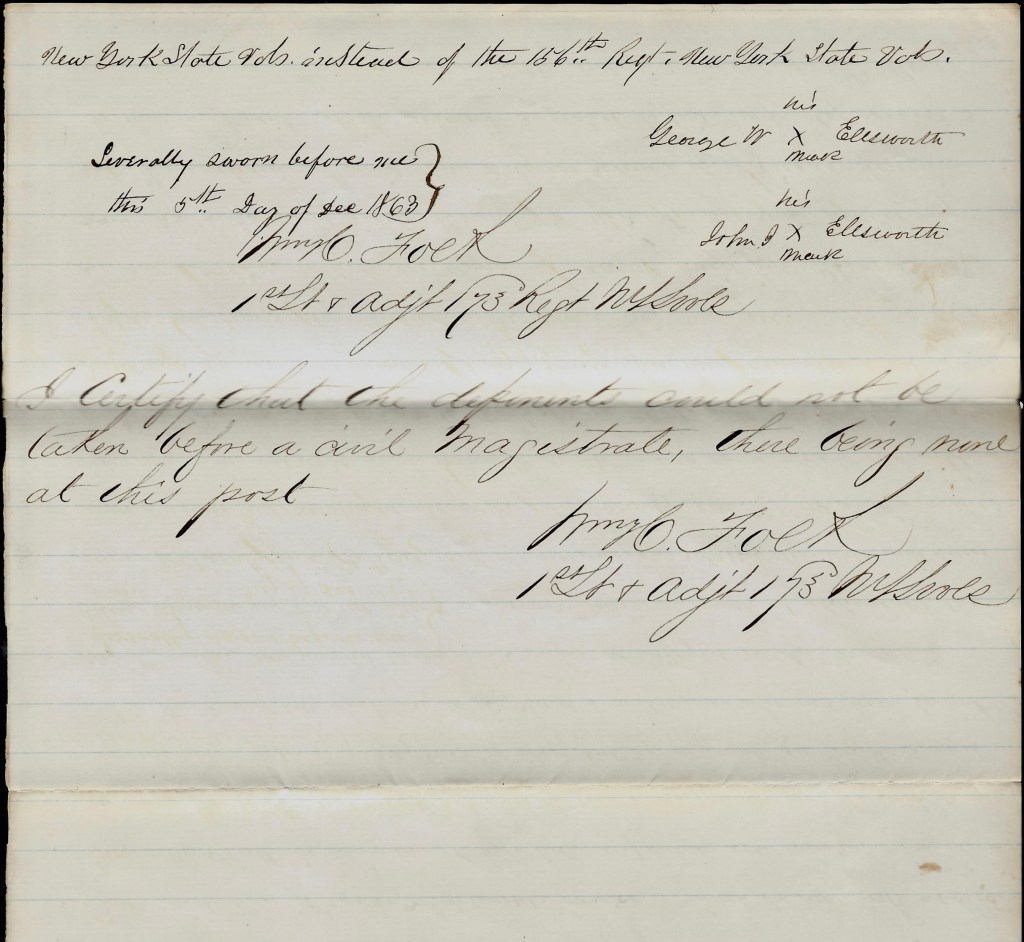 New York State Vols. instead of the 156th Regt. New York State Vols.
his
George W X Ellsworth
mark
Severally sworn before me
this 5th Day of Dec 1863
his
John J X Ellsworth
mark
Wm C. Folk
1st Lt & Adjt 173d Regt NYS Vols
I Certify that the deponents could not be
taken before a civil magistrate, there being none
at this post
Wm C. Folk
1st Lt & Adjt 173d NYS Vols